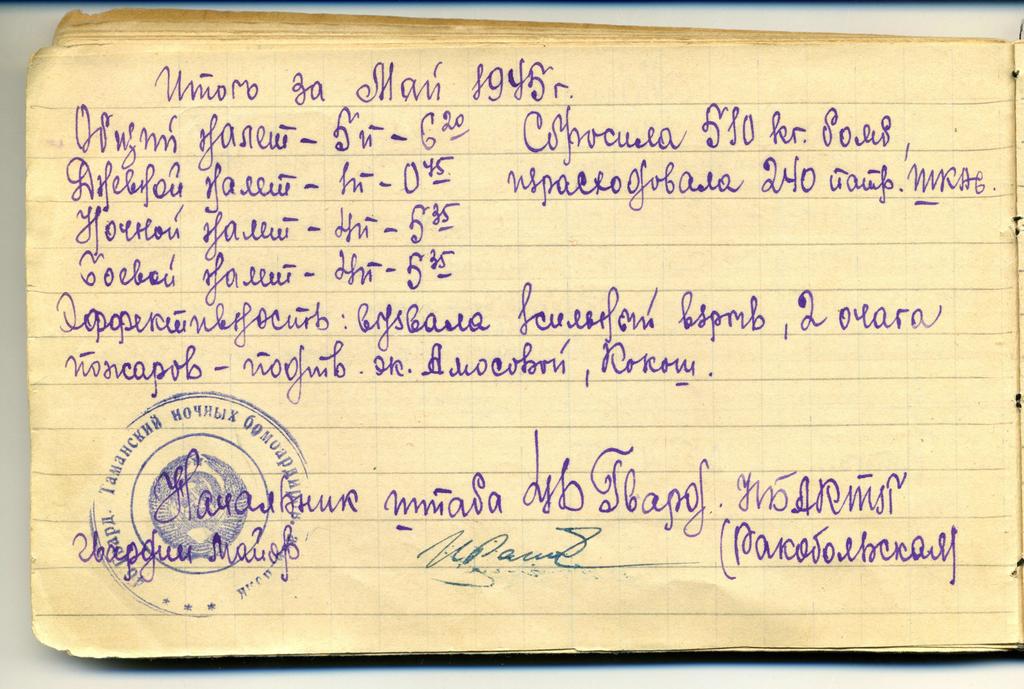 Итого за Май 1945г.
Общий налет - 5п - 6 20
Дневной налет - 1п - 0 45
Ночной налет - 4п - 5 35
Боевой налет - 4п - 5 35
Сбросила 510 кг. бомб,
израсходовала 240 патр. ШКАС.
Эффективность: вызвала 1сильный взрыв, 2 очага
пожаров - подтв. эк. Амосовой, Кокош.
Гвард. Таманский ночных бомбардиро
Начальник штаба 46 Гвард. НБАКТП
Гвардии Майор
(Ракобольская)